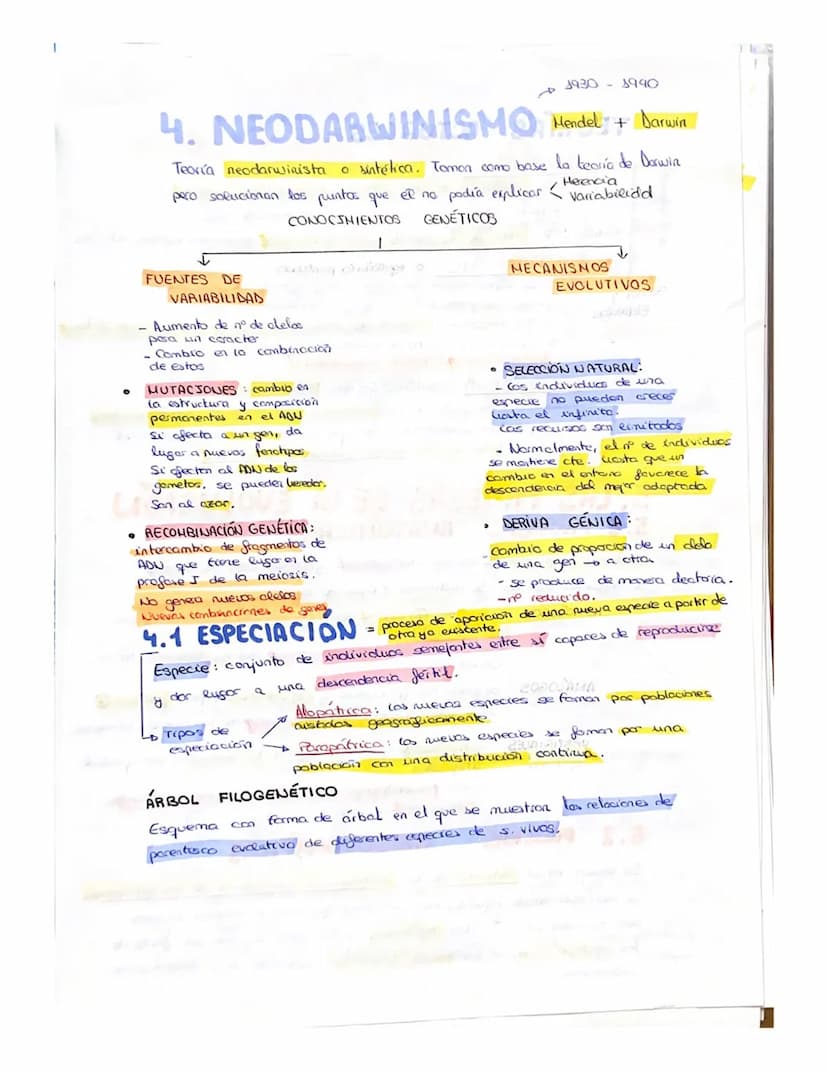 1930 - 1940
4. NEODARWINISMO Mendel + Darwin
Teoría neodarwinista o sintética. Toman como base la teoría de Darwin
pero solucionan los puntos que él no podía explicar < Herencia
Variabilidad
CONOCIMIENTOS GENÉTICOS
FUENTES DE
VARIABILIDAD
- Aumento de nº de alelos
para un caracter
- Cambio en la combinación
de estos
• MUTACIONES: cambio en
la estructura y composición
permanentes en el ADN
Si afecta a un gen, da
lugar a nuevos fenotipos
Si afectan al ADN de los
gametos, se pueden heredar.
Son al azar.
• RECOMBINACIÓN GENÉTICA:
intercambio de fragmentos de
ADN que tiene lugar en la
profase I de la meiosis.
No genera nuevos alelos
Nuevas combinaciones de genes
MECANISMOS
EVOLUTIVOS
• SELECCIÓN NATURAL:
- Los individuos de una
especie no pueden crecer
hasta el infinito.
Los recursos son limitados
- Normalmente, el nº de individuos
se mantiene cte. hasta que un
cambio en el entorno favorece la
descendencia del mejor adaptado
• DERIVA GÉNICA:
cambio de proporción de un alelo
de una gen → a otra.
- se produce de manera aleatoria.
- nº reducido.
4.1 ESPECIACIÓN = proceso de aparición de una nueva especie a partir de
otra ya existente.
Especie: conjunto de individuos semejantes entre sí capaces de reproducirse
y dar lugar a una descendencia fértil.
Tipos de
especiación
Alopátrica: las nuevas especies se forman por poblaciones
aisladas geográficamente
Parapátrica: las nuevas especies se forman por una
población con una distribución continua.
ÁRBOL FILOGENÉTICO
Esquema con forma de árbol en el que se muestran las relaciones de
parentesco evolutivo de diferentes especies de s. vivos.